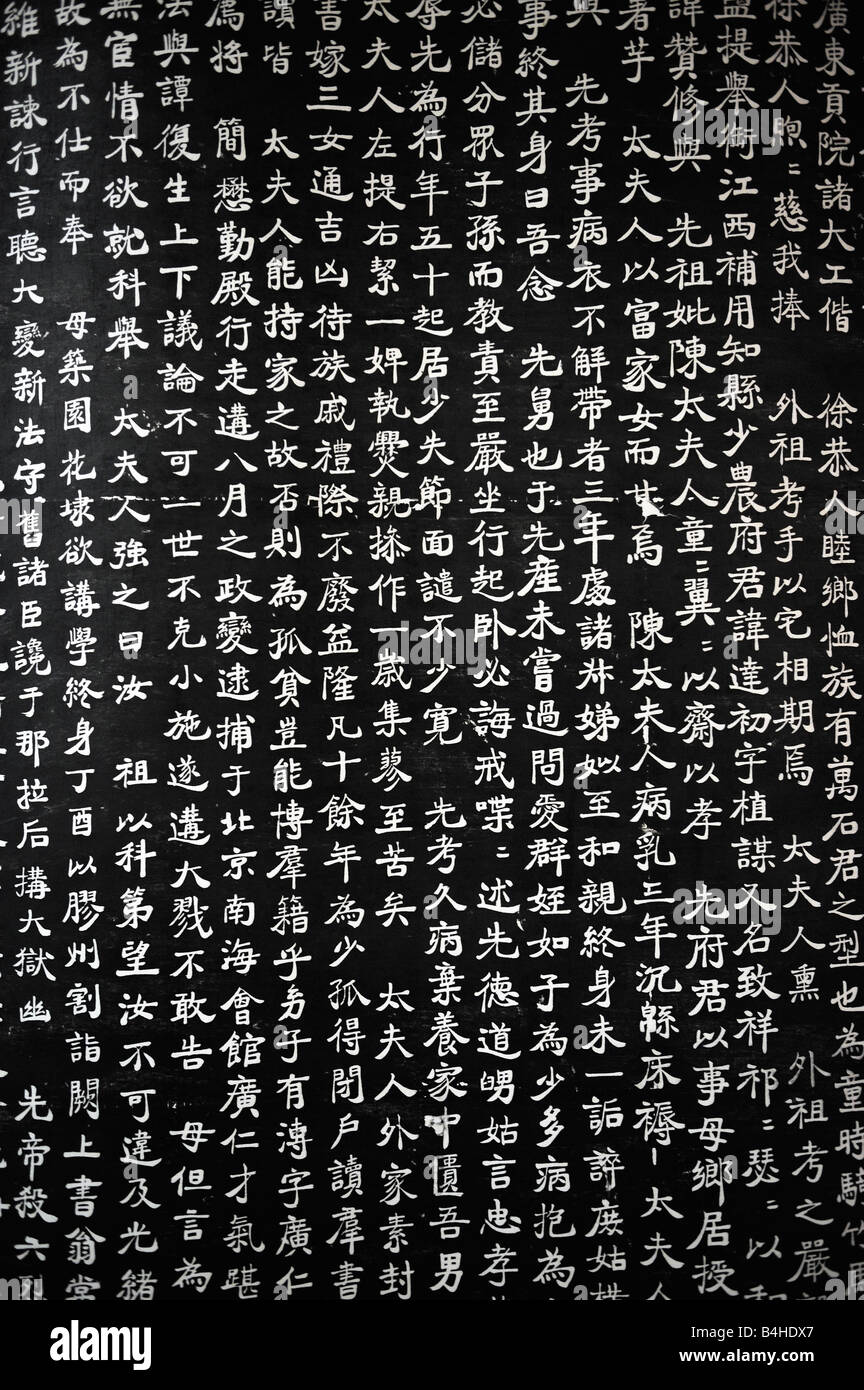 廣東貢院諸大工偕 徐恭人睦鄉恤族有萬石君之型也為童時騎竹
徐恭人煦〻慈我捧 外祖考手以宅相期焉 太夫人熏 外祖考之嚴
鹽提舉銜江西補用知縣少農府君諱達初字植謀又名致祥祁〻瑟〻以和
諱贊修與 先祖妣陳太夫人童〻翼〻以齋以孝 先府君以事母鄉居授
著芋 太夫人以富家女而甘焉 陳太夫人病乳三年沉緜床褥 太夫人
與 先考事病衣不解帶者三年處諸姊娣姒至和親終身未一詬誶庶姑
事終其身曰吾念 先舅也于先産未嘗過問愛群姪如子為少多病抱為
必儲分眾子孫而教責至嚴坐行起臥必誨戒喋〻述先德道舅姑言忠孝
辱先為行年五十起居少失節面譴不少寬 先考久病棄養家中匱吾男
太夫人左提右絜一婢執爨親操作一歲集蓼至苦矣 太夫人外家素封
書嫁三女通吉凶待族戚禮際不廢益隆凡十餘年為少孤得閉戶讀羣書
讀皆 太夫人能持家之故否則為孤貧豈能博羣籍乎身子有溥字廣仁
為將 簡懋勤殿行走遘八月之政變逮捕于北京南海會館廣仁才氣踸
法與譚復生上下議論不可一世不克小施遂遘大戮不敢告 母但言為
無宦情不欲就科舉 太夫人強之曰汝 祖以科第望汝不可違及光緒
故為不仕而奉 母築園花埭欲講學終身丁酉以膠州割詣闕上書翁常
維新諫行言聽大變新法守舊諸臣讒于那拉后搆大獄幽 先帝殺六烈
alamy
Image ID: B4HDX7
www.alamy.com